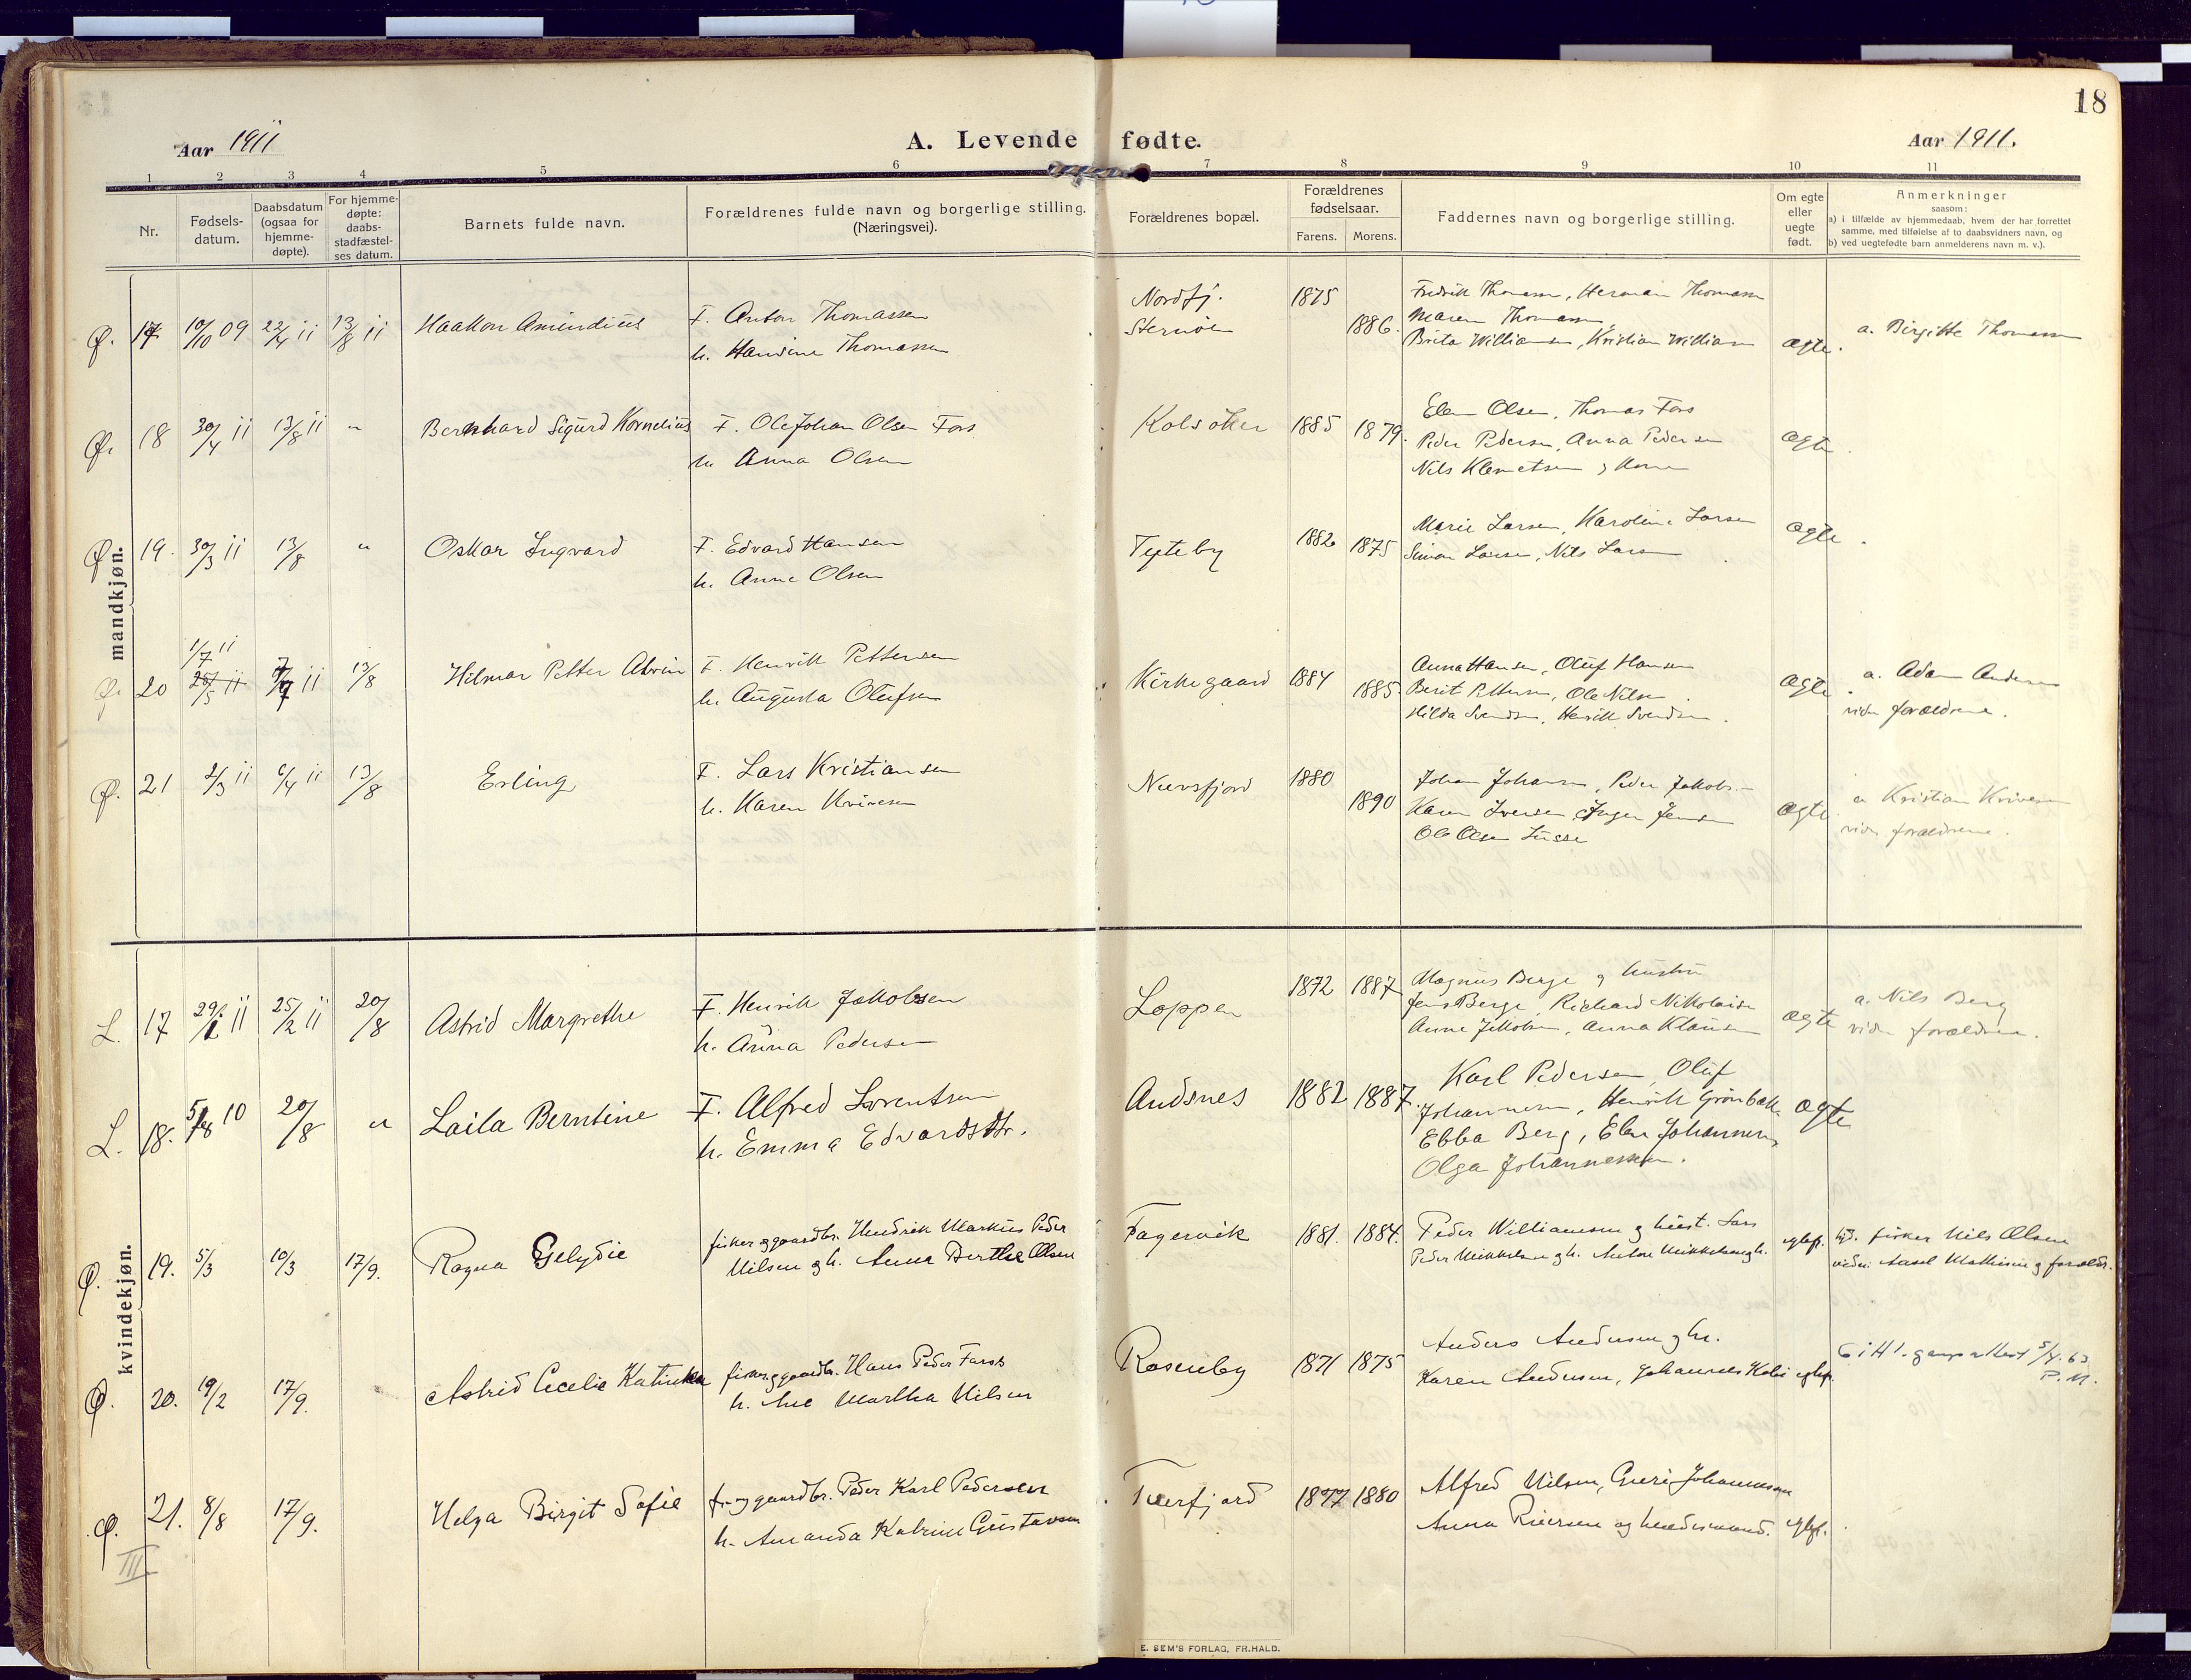 18
Aar 1911
A. Levende fødte.
Aar 1911.
1 2 3 4 5 6 7 8 9 10 11
Nr.
Fødsels-
datum.
Daabsdatum
(ogsaa for
hjemme-
døpte).
For hjemme-
døpte:
daabs-
stadfæstel-
ses datum.
Barnets fulde navn.
Forældrenes fulde navn og borgerlige stilling.
(Næringsvei).
Forældrenes bopæl.
Forældrenes
fødselsaar.
Farens. Morens.
Faddernes navn og borgerlige stilling.
Om egte
eller
uegte
født.
Anmerkninger
saasom:
a) i tilfælde av hjemmedaab, hvem der har forrettet
samme, med tilføielse af to daabsvidners navn, og
b) ved uegtefødte barn anmelderens navn m. v.).
mandkjøn.
Ø. 17 10/10 09 22/4 11 13/8 11 Haakon Amindius
F. Anton Thomassen
h. Hansine Thomassen
Nordfj.
Sternöen
1875 1886.
Fredrik Thomassen, Herman Thomassen
Maren Thomassen
Brita Williamsen, Kristian William
ægte.
a. Birgitte Thomassen
Ø. 18 30/4 11 13/8 11 " Bernhard Sigurd Kornelius
F. Ole Johan Olsen Fors
h. Anna Olsen
Kolsöker 1885 1879.
Elen Olsen, Thomas Fors
Peder Pedersen, Anna Pedersen
Nils Klemetsen & Kone
ægte.
Ø. 19. 30/3 11 13/8 " Oskar Ingvard
F. Edvard Hansen
h. Anne Olsen
Tyteby 1882 1875
Marie Larsen, Karoline Larsen
Simon Larsen, Nils Larsen
ægte.
1/7 11
Ø. 20 28/5 11 9/7 11 13/8 Hilmar Petter Alvin
F. Henrik Pettersen
h. Augusta Olufsen
Kirkegaard 1884 1885.
Anna Hansen, Oluf Hansen
Berit Pettersen, Ole Nilsen
Hilda Svendsen, Henrik Svendsen.
ægte.
a. Adam Andersen
vidn forældrene.
Ø. 21 2/3 11 6/4 11 13/8 Erling
F. Lars Kristiansen
h. Karen Kvivesen
Nuvsfjord 1880 1890
Johan Johansen, Peder Jakobs.
Karen Iversen, Inger Jensen
Ole Olsen Lusse
ægte.
a Kristian Kvivesen
vidn forældrene.
kvindekjøn.
L. 17 29/1 11 25/2 11 20/8 Astrid Margrethe
F. Henrik Jakobsen
h. Anna Pedersen
Loppen 1872 1887
Magnus Berge og hustru
Jens Berge, Richard Nikolaisen
Anne Jakobsen, Anna Klausen
ægte
a. Nils Berg
vidn forældrene.
L. 18. 5/8 10 20/8 " Laila Berntine
F. Alfred Lorentsen
h. Emma Edvardsdtr.
Andsnes 1882 1887.
Karl Pedersen, Oluf
Johannesen, Henrik Grönbæk
Ebba Berg, Elen Johannesen,
Olga Johannessen.
ægte
Ø. 19. 5/3 10/3 17/9. Ragna Gelydie
fisker og gaardbr. Hendrik Markus Peder
Nilsen og h. Anna Berthe Olsen
Fagervik 1881. 1884.
Peder Williamsen og hust. Lars
Peder Mikkelsen og h. Anton Mikkelsen og h.
egtef.
hjd. fisker Nils Olsen
vidn. Aasel Mathisen og forældr.
Ø. 20. 19/2 17/9. Astrid Cecelie Katinka
fisker og gaardbr. Hans Peder Farsts
h. Ane Martha Nilsen
Rosenby 1871 1875
Anders Andersen og h.
Karen Andersen, Johannes Kolsi
egtef.
5/4.63
P.M.
Ø. 21. 8/8 17/9. Helga Birgit Sofie
f. og gaardbr. Peder Karl Pedersen
h. Amanda Katrine Gustavsen
Tverfjord 1877 1880
Alfred Nilsen, Guri Johannesen
Anna Riersen og hendes mand.
egtef.
III
E. SEM'S FORLAG, FR.HALD.